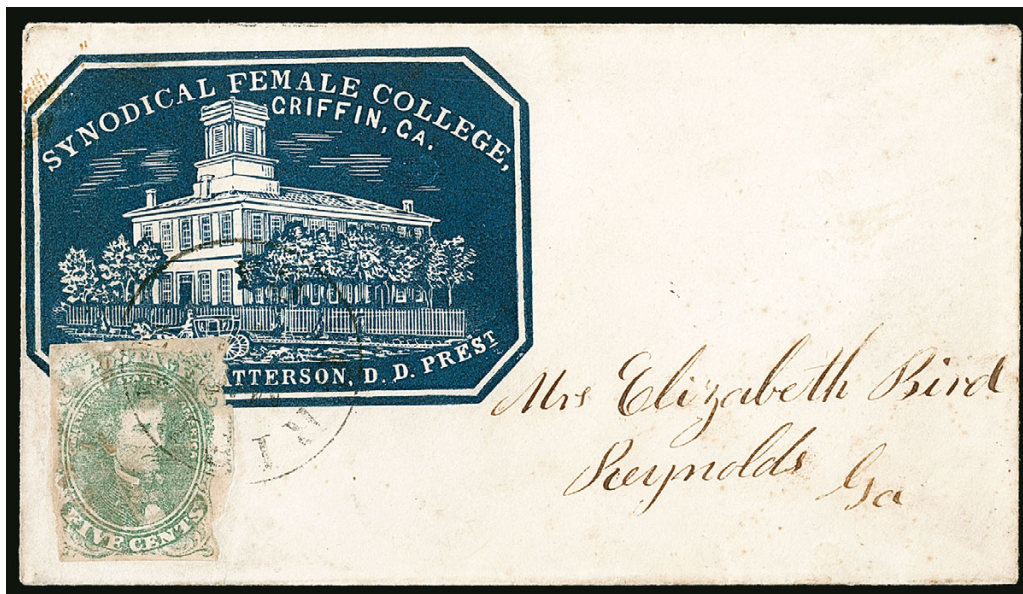 SYNODICAL FEMALE COLLEGE,
GRIFFIN, GA.
ATTERSON, D. D. PREST
FIVE CENTS
Mrs Elizabeth Bird
Reynolds
Ga